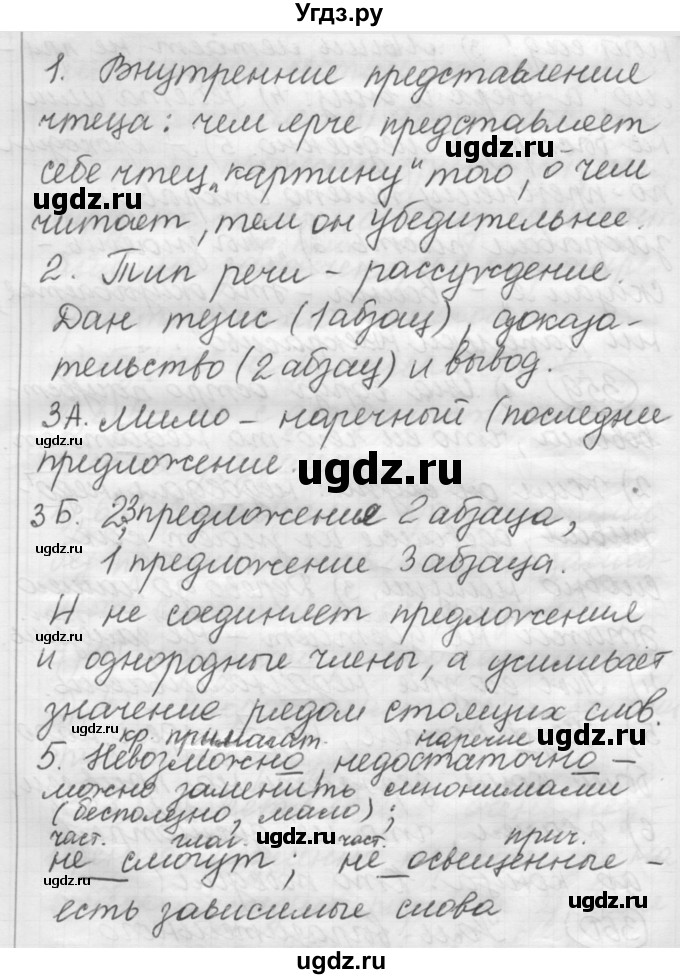 Угдз.ру
1. Внутренние представления
чтеца: чем ярче представляет
ugdz.ru
себе чтец „картину“ того, о чем
ugdz.ru
читает, тем он убедительнее.
2. Тип речи – рассуждение.
Дан тезис (1 абзац), доказа-
тельство (2 абзац) и вывод.
3А. Мимо – наречный (последнее
предложение.
ugdz.ru
3 Б. 2,3 предложение 2 абзаца,
ugdz.ru
1 предложение 3 абзаца.
И не соединяет предложения
и однородные члены, а усиливает
значение рядом стоящих слов.
кр. прилагат. наречие
ugdz.ru
5. Невозможно, недостаточно –
можно заменить синонимами
(бесполезно, мало);
част. глаг. част. прич.
ugdz.ru ugdz.ru
не смогут; не освещенные –
есть зависимые слова
ugdz.ru